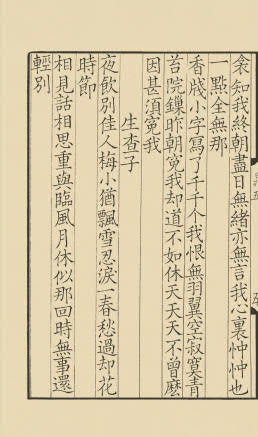 衾知我終朝盡日無緒亦無言我心裏忡忡也
一點全無那
香牋小字寫了千千个我恨無羽翼空寂寞青
苔院鏁昨朝寃我却道不如休天天天不曾麽
因甚湏寃我
生查子
夜飲别佳人梅小猶飄雪忍淚一春愁過却花
時節
相見話相思重與臨風月休似那回時無事還
輕别